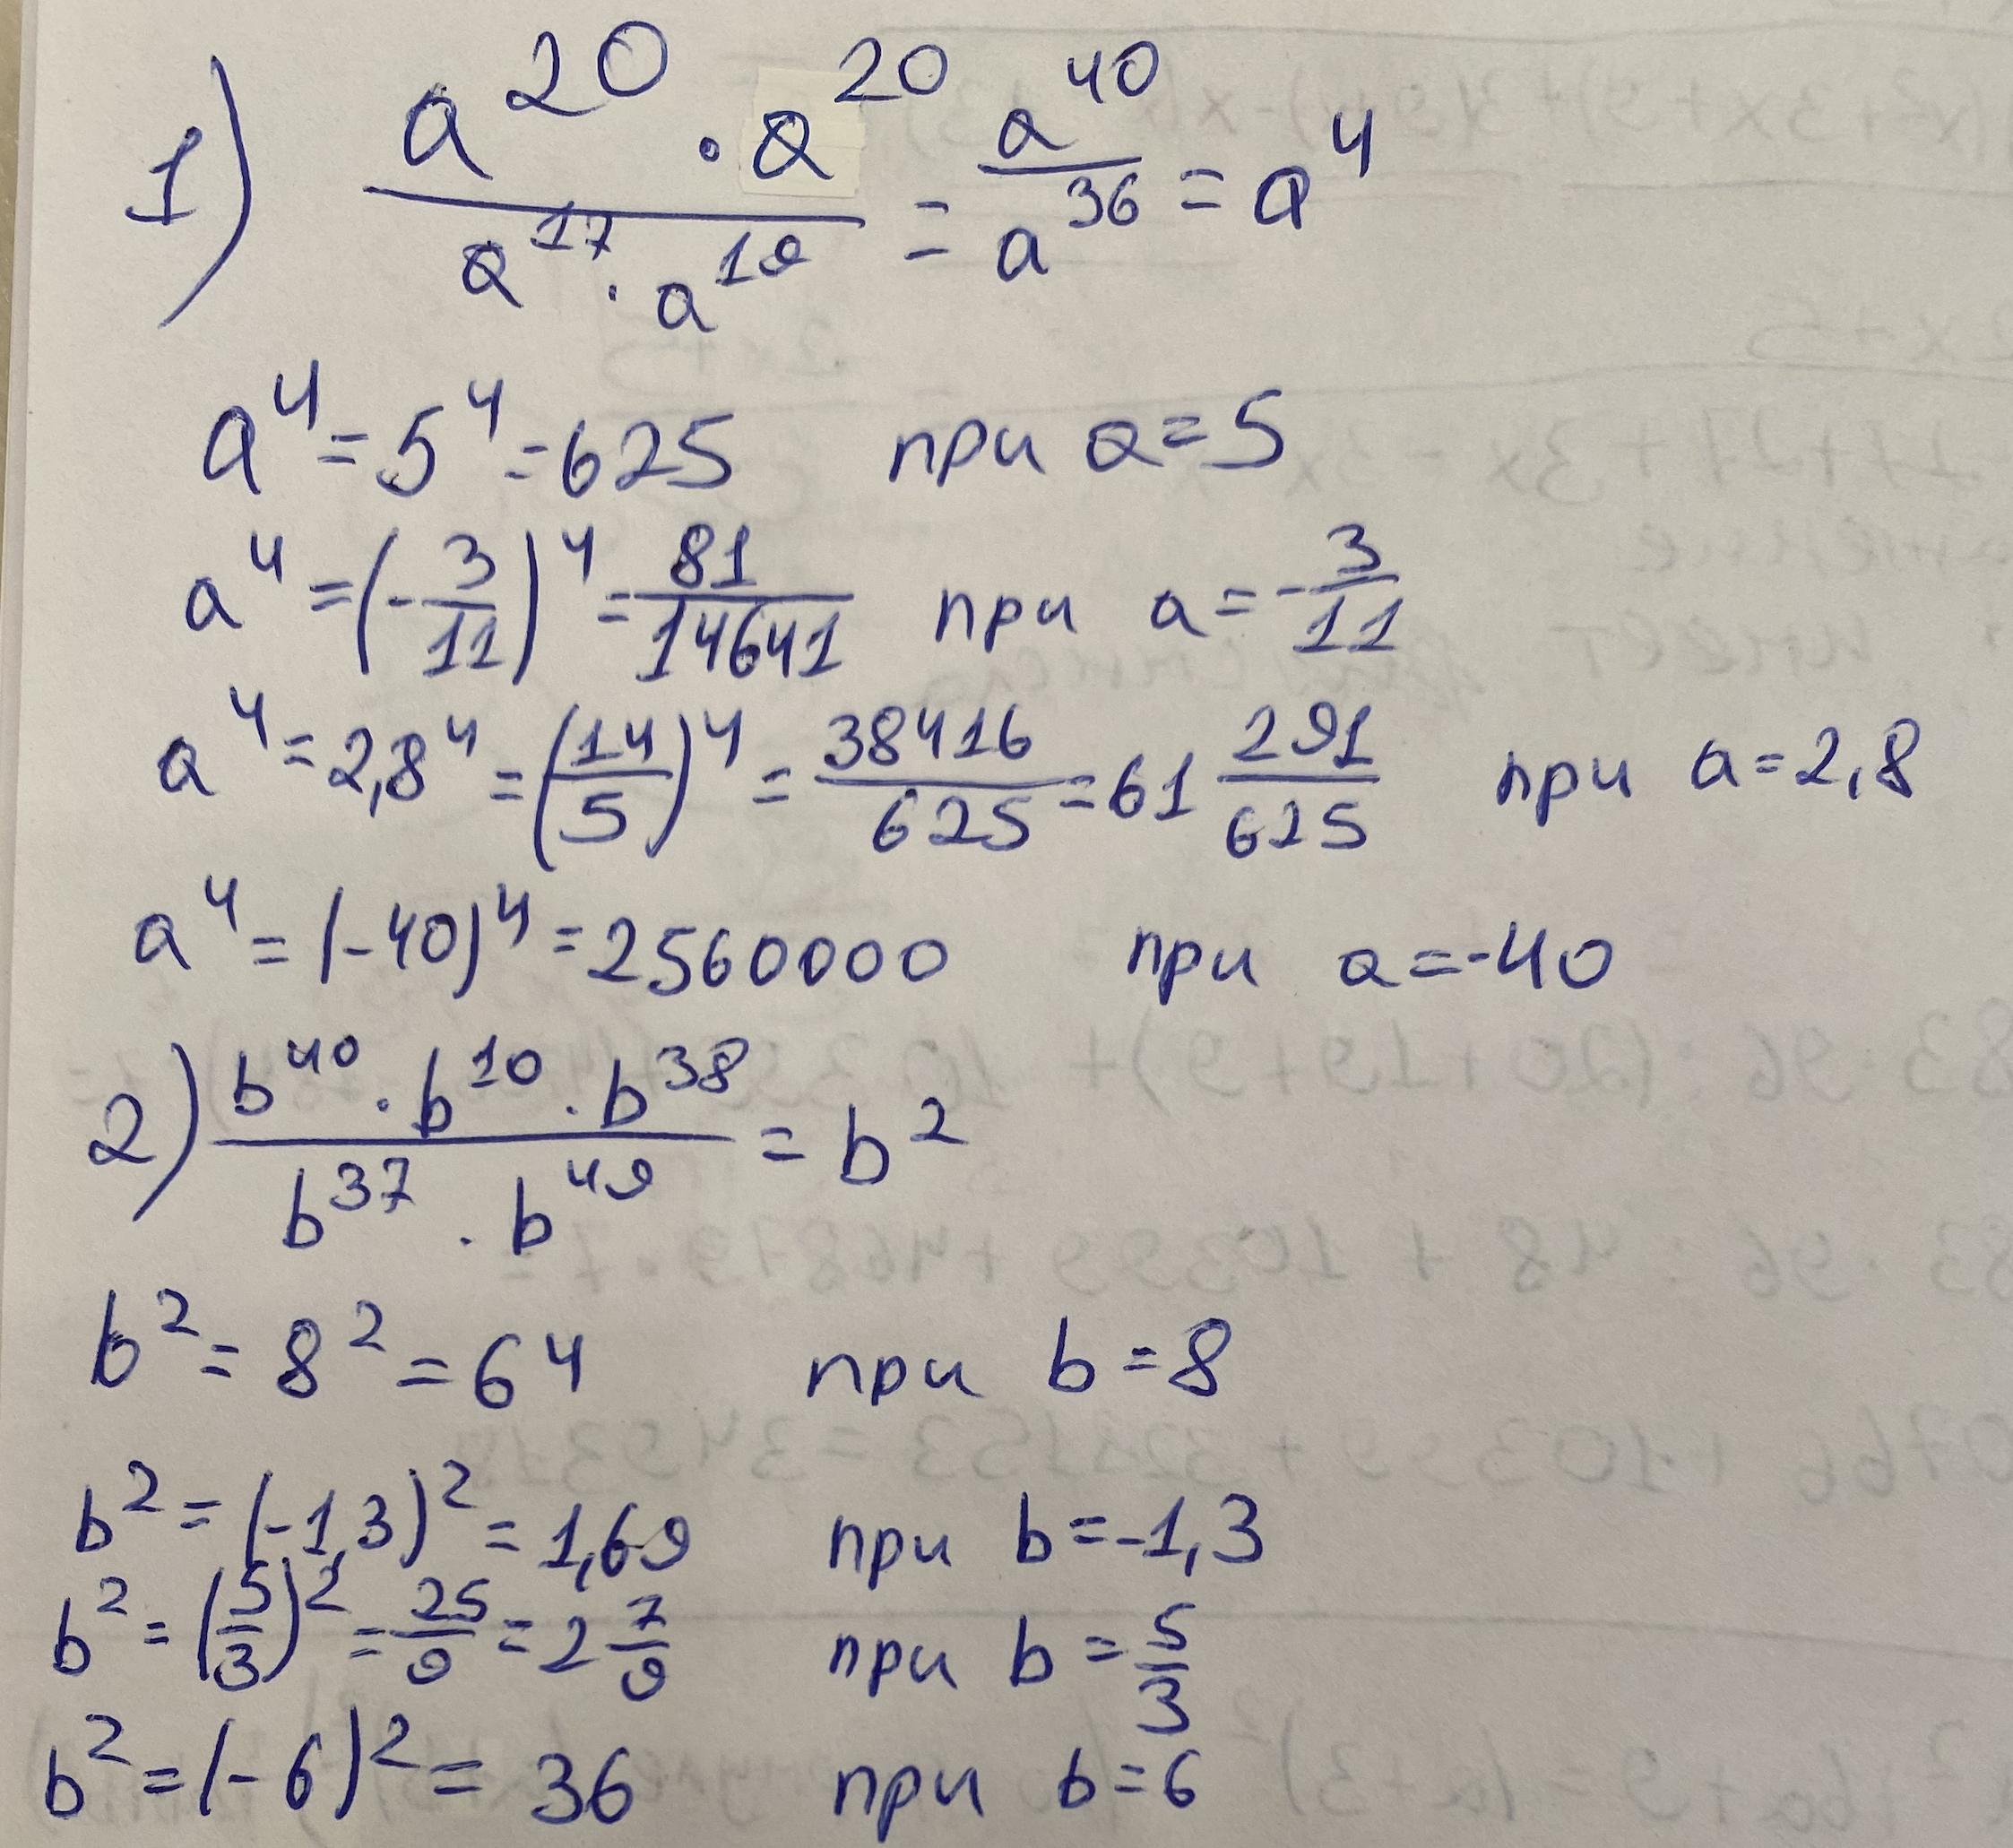 1) (a^20 · a^20)/(a^17 · a^19) = a^40/a^36 = a^4
a^4 = 5^4 = 625 при a = 5
a^4 = (-3/11)^4 = 81/14641 при a = -3/11
a^4 = 2,8^4 = (14/5)^4 = 38416/625 = 61 291/625 при a = 2,8
a^4 = (-40)^4 = 2560000 при a = -40
2) (b^40 · b^10 · b^38)/(b^37 · b^49) = b^2
b^2 = 8^2 = 64 при b = 8
b^2 = (-1,3)^2 = 1,69 при b = -1,3
b^2 = (5/3)^2 = 25/9 = 2 7/9 при b = 5/3
b^2 = (-6)^2 = 36 при b = 6